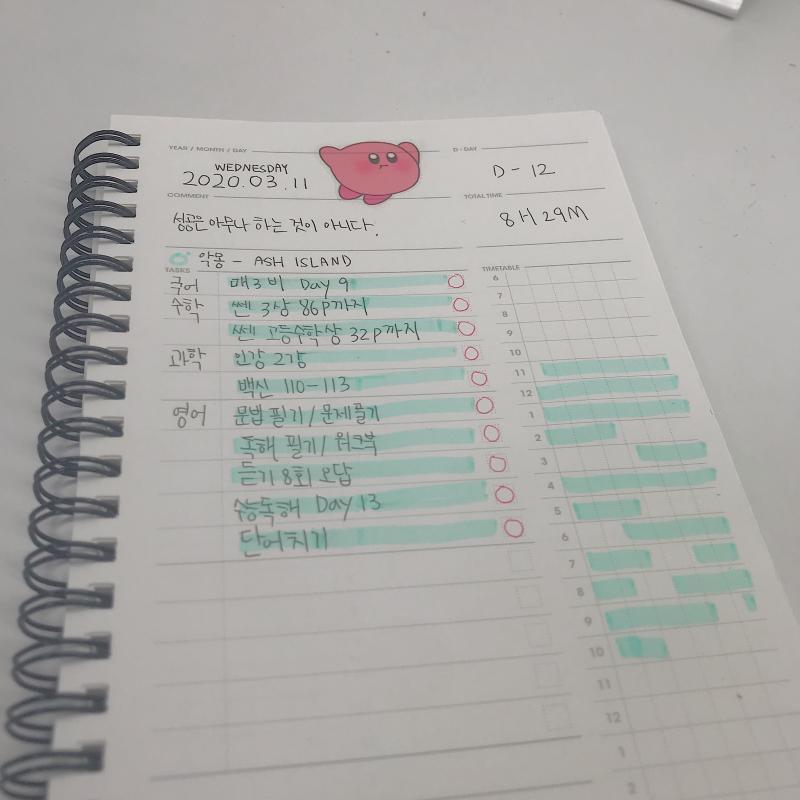 YEAR / MONTH / DAY
D-DAY
WEDNESDAY
2020.03.11
D-12
COMMENT
TOTAL TIME
성공은 아무나 하는 것이 아니다.
8H 29M
악몽 - ASH ISLAND
TASKS
TIMETABLE
국어 매3비 Day 9
수학 쎈 3상 86P까지
쎈 고등수학상 32P까지
과학 인강 2강
백신 110-113
영어 문법 필기/문제풀기
독해 필기/워크북
듣기 8회 오답
수능독해 Day 13
단어치기
6
7
8
9
10
11
12
1
2
3
4
5
6
7
8
9
10
11
12
1
2